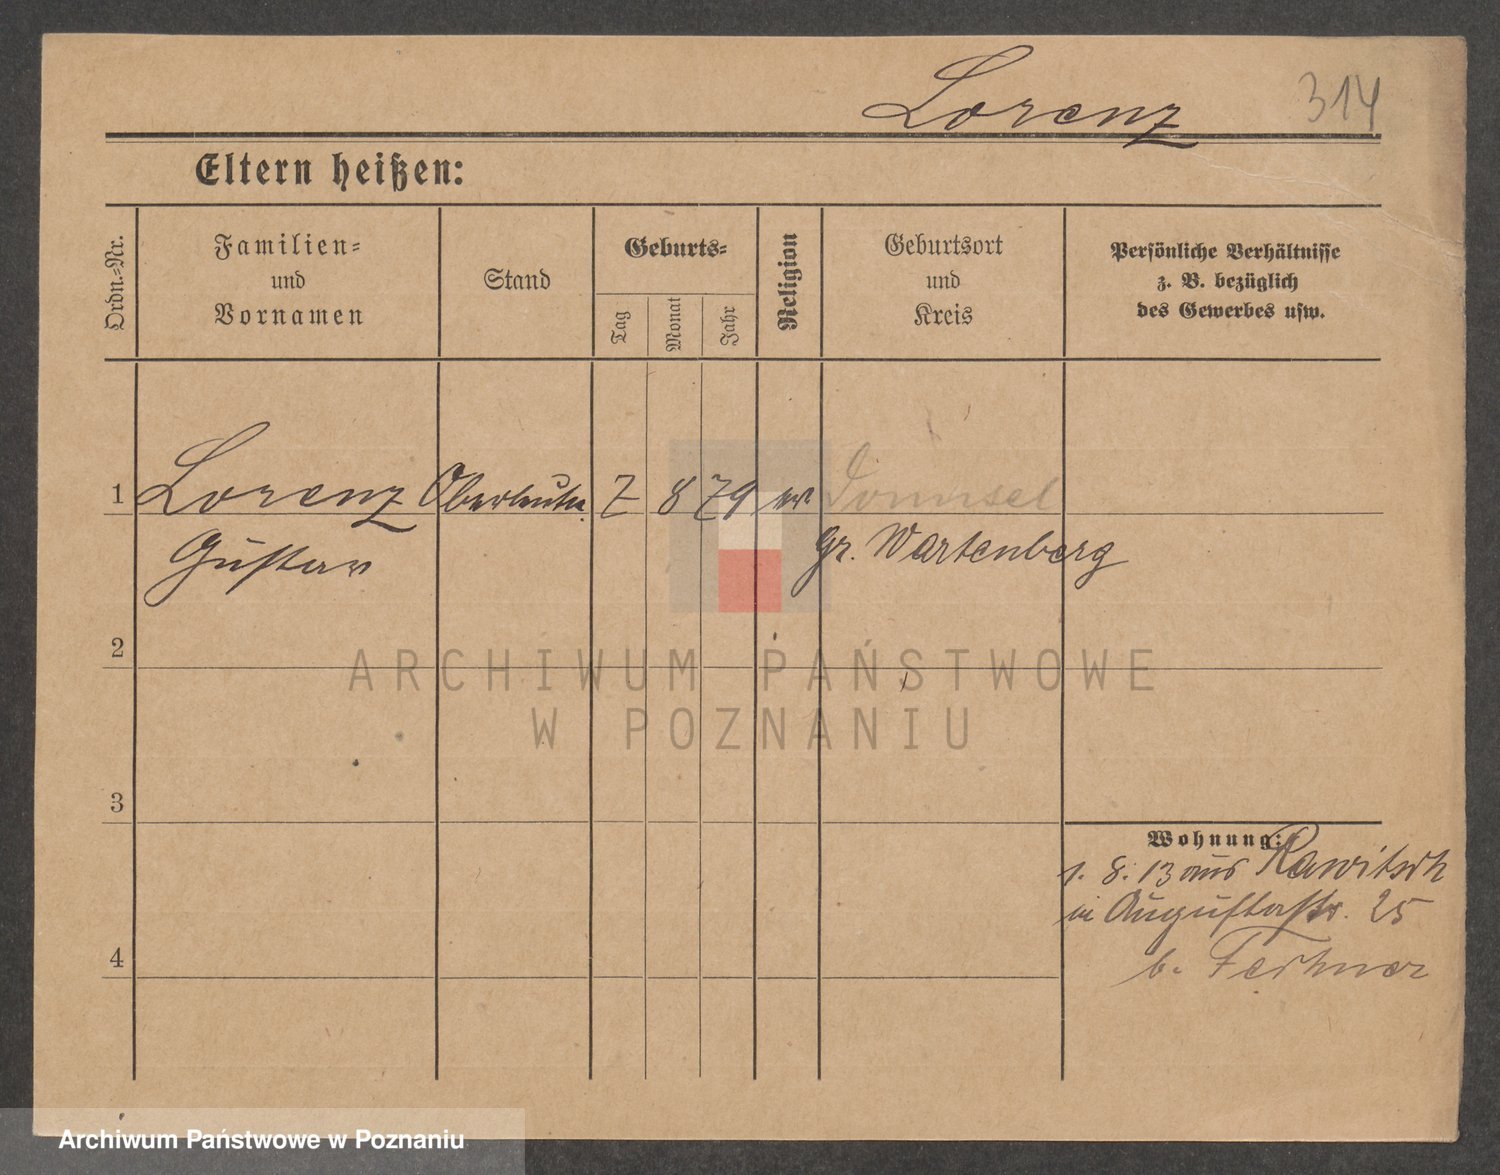 Lorenz 314
Eltern heißen:
Ordn.-Nr.
Familien-
und
Vornamen
Stand
Geburts-
Tag
Monat
Jahr
Religion
Geburtsort
und
Kreis
Persönliche Verhältnisse
z. B. bezüglich
des Gewerbes usw.
1 Lorenz Oberleutn. 7 8 79 ev
Gustav Gr. Wartenberg
2
3
4
Wohnung:
1. 8. 13 aus Rawitsch
in Augustastr. 25
b. Fechner
ARCHIWUM PAŃSTWOWE
W POZNANIU
Archiwum Państwowe w Poznaniu